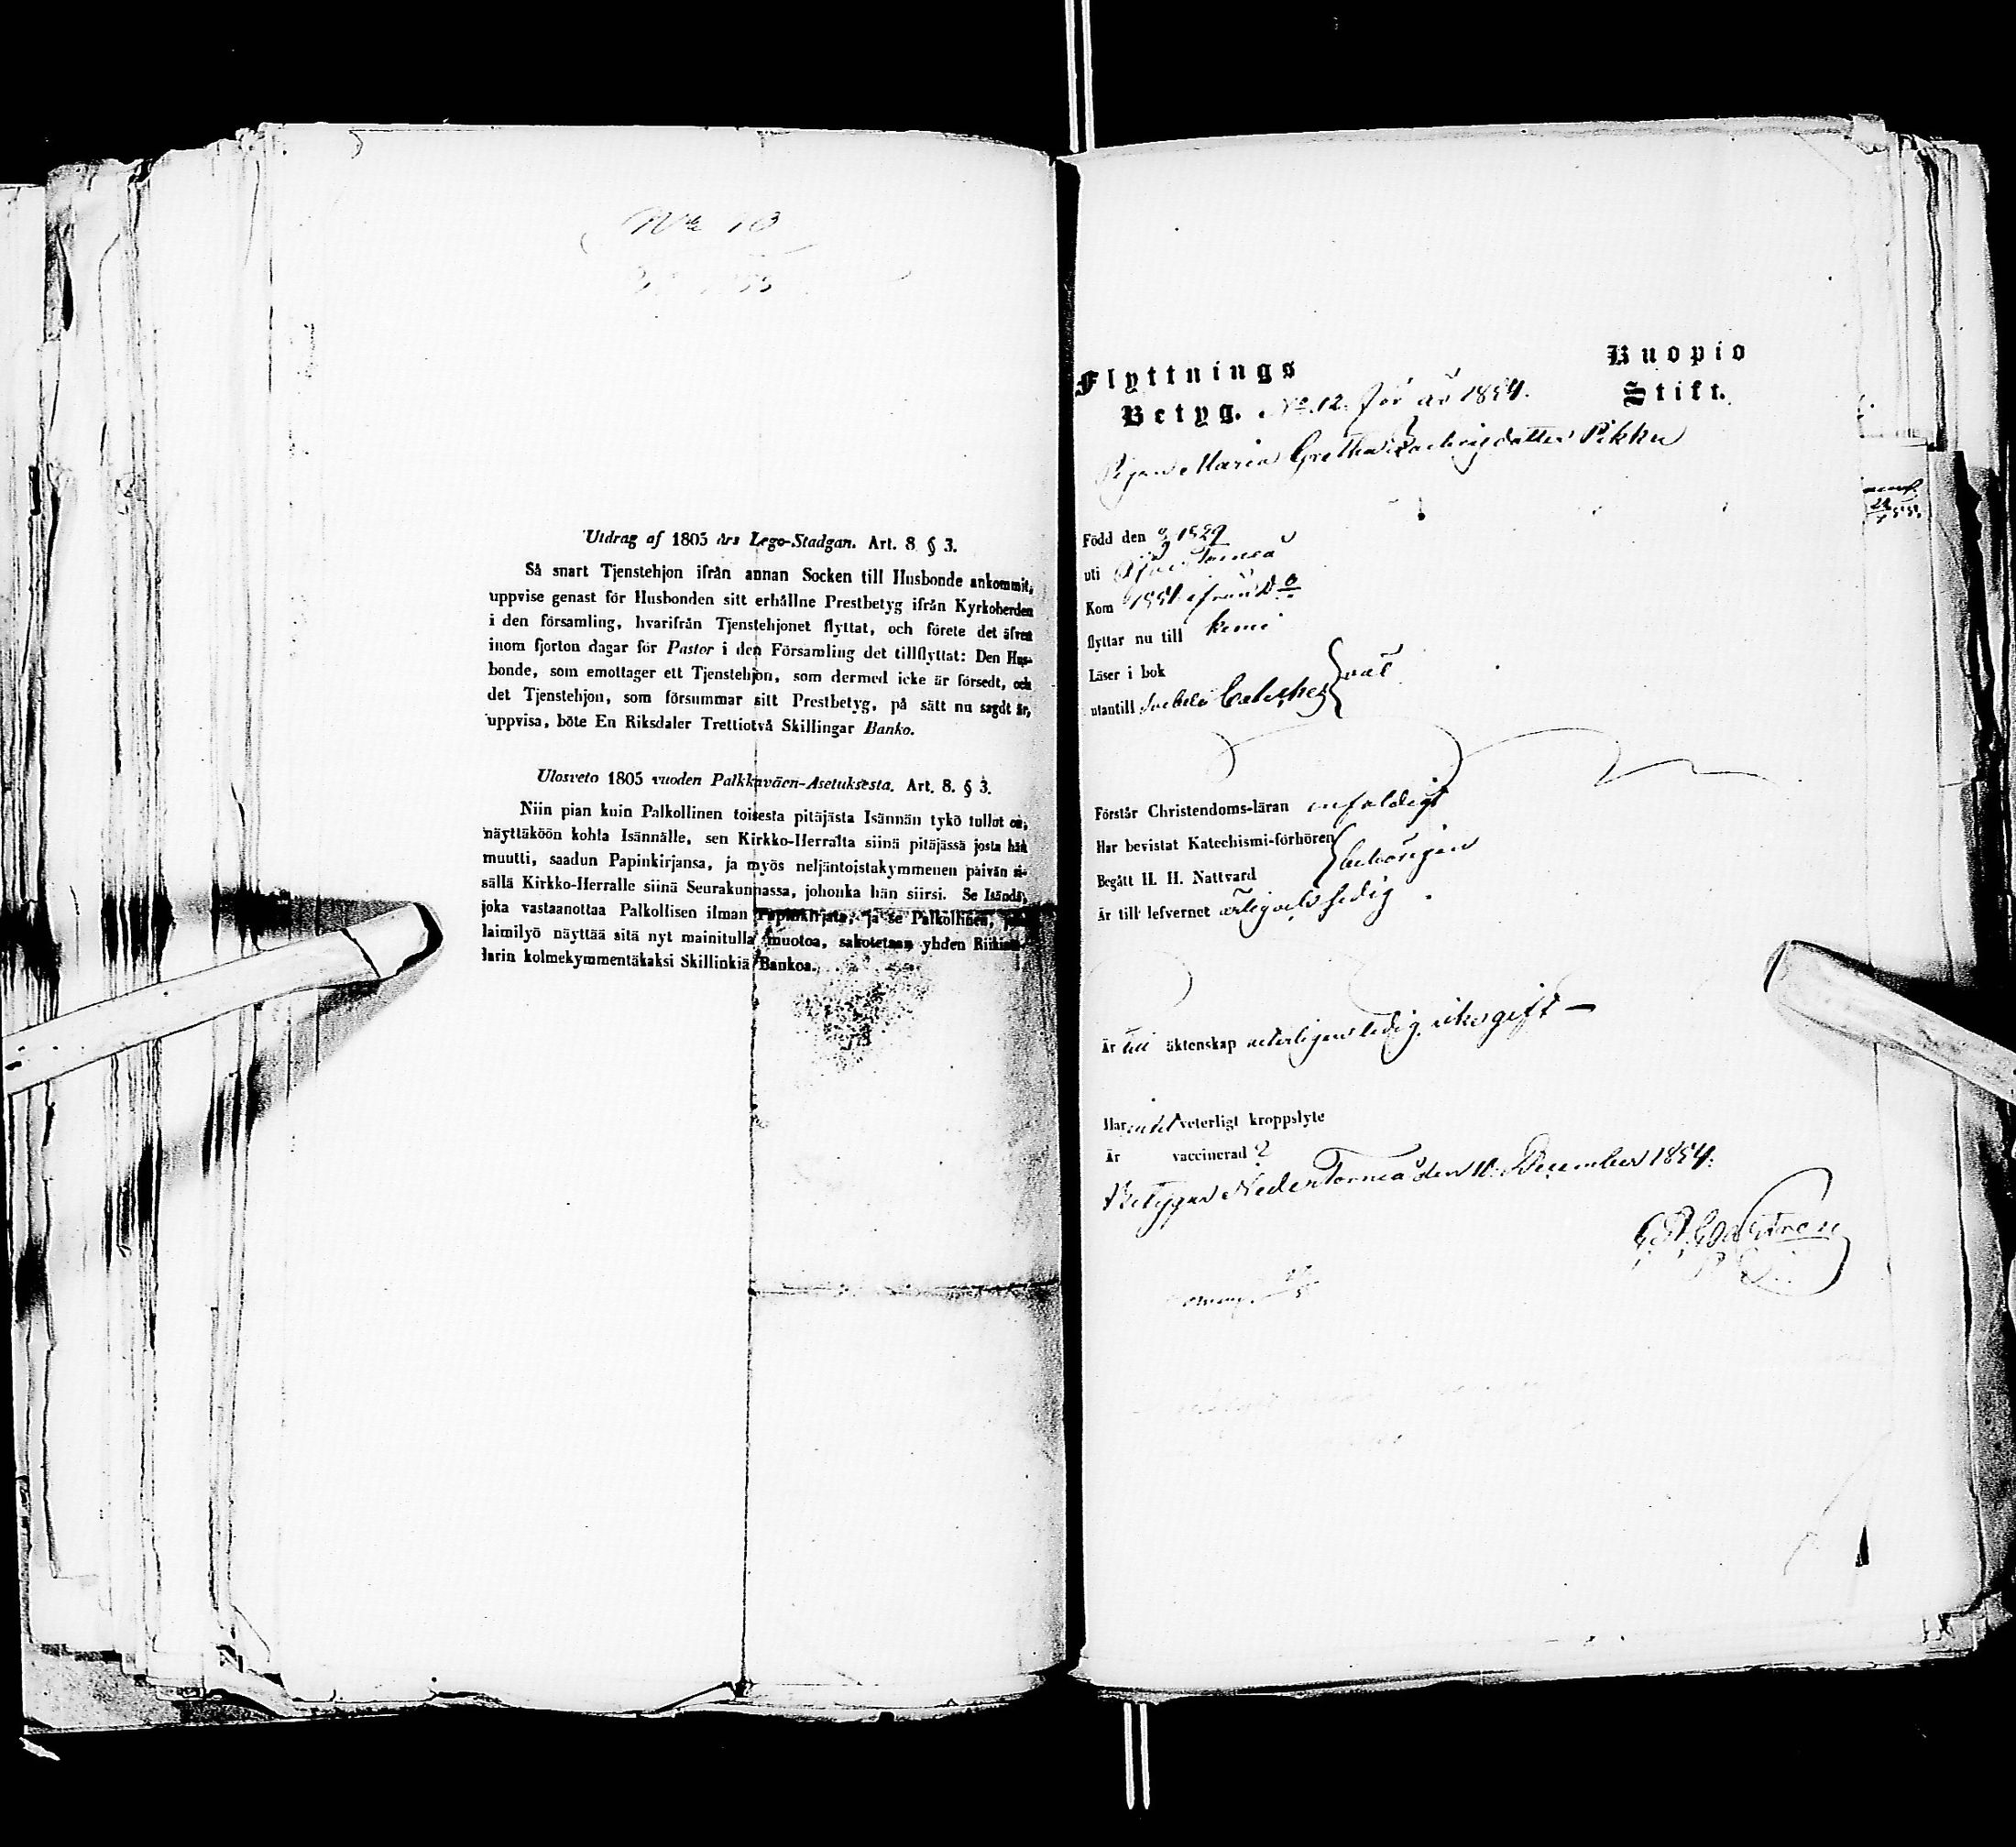 No 13
Utdrag af 1805 års Lego-Stadgan. Art. 8 § 3.
Så snart Tjenstehjon ifrån annan Socken till Husbonde ankommit,
uppvise genast för Husbonden sitt erhållne Prestbetyg ifrån Kyrkoherden
i den församling, hvarifrån Tjenstehjonet flyttat, och förete det äfven
inom fjorton dagar för Pastor i den Församling det tillflyttat: Den Hus-
bonde, som emottager ett Tjenstehjon, som dermed icke är försedt, och
det Tjenstehjon, som försummar sitt Prestbetyg, på sätt nu sagdt är,
uppvisa, böte En Riksdaler Trettiotvå Skillingar Banko.
Ulosveto 1805 vuoden Palkkaväen-Asetuksesta. Art. 8. § 3.
Niin pian kuin Palkollinen toisesta pitäjästä Isännän tykö tullut on,
näyttäköön kohta Isännälle, sen Kirkko-Herralta siinä pitäjässä josta hän
muutti, saadun Papinkirjansa, ja myös neljäntoistakymmenen päivän si-
sällä Kirkko-Herralle siinä Seurakunnassa, johonka hän siirsi. Se Isändä,
joka vastaanottaa Palkollisen ilman Papinkirjata, ja se Palkollinen,
laimilyö näyttää sitä nyt mainitulla muotoa, sakotetaan yhden Riikin
larin kolmekymmentäkaksi Skillinkiä Bankoa.
Flyttnings
Kuopio
Betyg. No. 12. för år 1854.
Stift.
Pigan Maria Gretha dotter Pikku
Född den 1829
uti Torneå
Kom 1851 ifrån Do
flyttar nu till Kemi
Läser i bok
utantill Cateches väl
Förstår Christendoms-läran enfaldigt
Har bevistat Katechismi-förhören
Begått H. H. Nattvard behörigen
Är till lefvernet ärlig och sedig
Är till äktenskap veterligen ledig, icke gift —
Har intet veterligt kroppslyte
Är vaccinerad?
Betygar Neder Torneå den 11. December 1854.